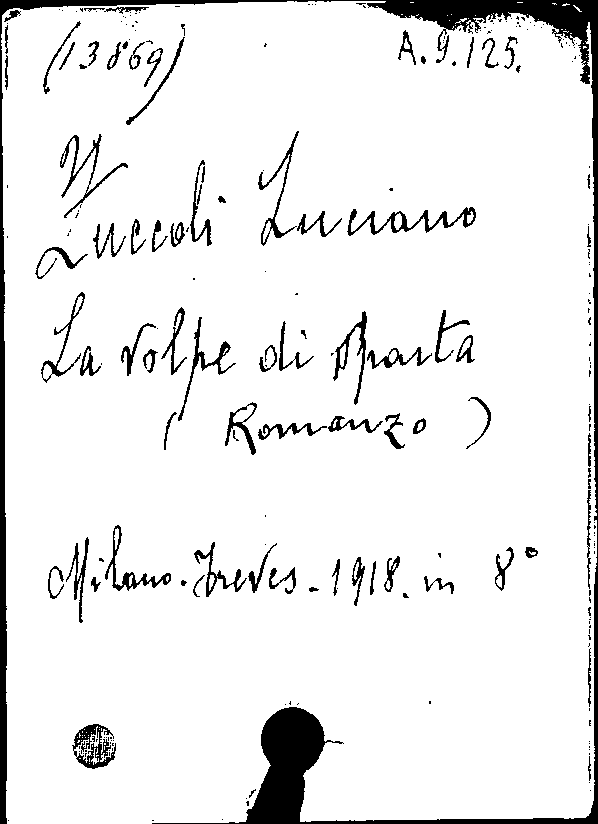 (13869) A.9.125.
Zuccoli Luciano
La volpe di Sparta
( Romanzo )
Milano. Treves. 1918. in 8°